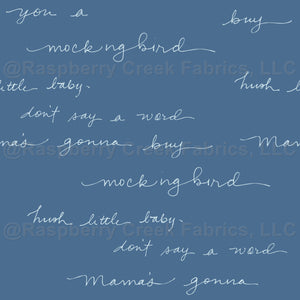 you a buy
mockingbird
@Raspberry Creek Fabrics, LLC
little baby. hush
don't say a word
mama's gonna buy Mama
mockingbird
hush little baby.
@Raspberry Creek Fabrics, LLC
don't say a word
Mama's gonna